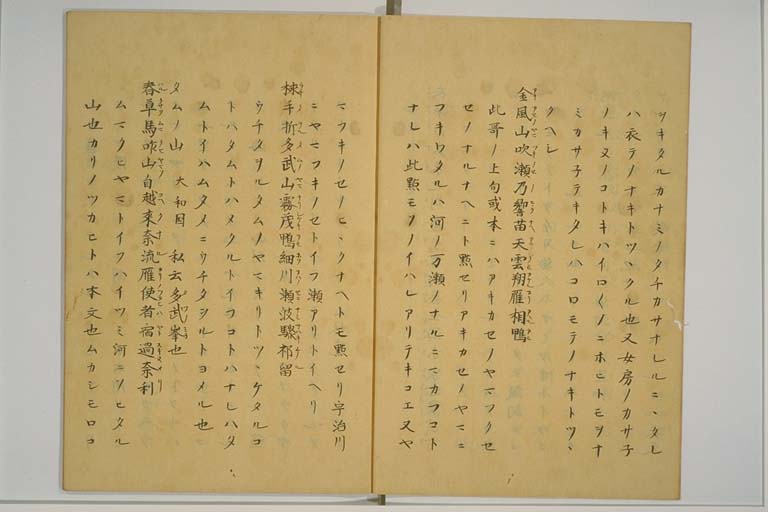 ツキタルカナミノタチカサナレルニヽタレ
ハ衣テノナキトツヽクル也又女房ノカサ子
ノキヌノコトキハイロ〳〵ノニホヒトモヲナ
ミカサ子テキタレハコロモテノナキトツヽ
クヘシ
金風山吹瀬乃響苗天雲翔雁相鴨
此哥ノ上句或本ニハアキカセノヤマフクセ
セノナルナヘニト點セリアキカセノヤマニ
フキワタルハ河ノ万瀬ノナルニマカフコト
ナレハ此點モソノイハレアリテキコエ又ヤ
マフキノセノヒヽクナヘトモ點セリ宇治川
ニヤマフキノセトイフ瀬アリトイヘリ
梾手折多武山霧茂鴨細川瀬波驟祁留
ウチタヲルタムノヤマキリトツヽケタルコ
トハタムトハメクルトイフコトハナレハタ
ムトイハムタメニウチタヲルトヨメル也
タムノ山 大和国 私云多武峯也
春草馬咋山自越來奈流雁使者宿過奈利
ムマクヒヤマトイフハイツミ河ニソヒタル
山也カリノツカヒトハ本文也ムカシモロコ